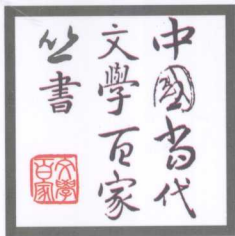 中國当代
文學百家
丛書
文學
百家